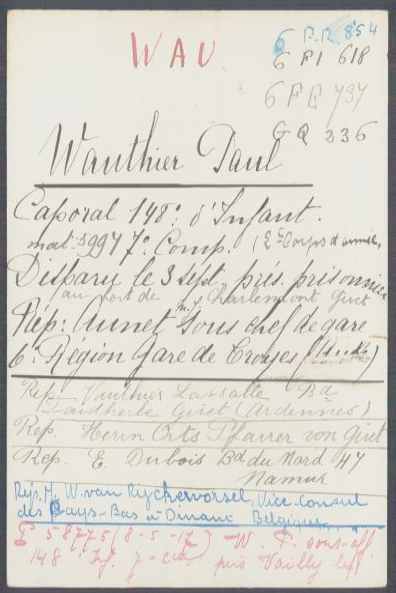 WAU
6 F.R. 854
6 FI 618
6 FE 737
GQ 236
Wauthier Paul
Caporal 148e d'Infant.
mat: 5994 7e Comp. (2e Corps d'armée)
Disparu le 3 sept. prés. prisonnier
au fort de Charlemont Givet
Rép: Aunet, sous chef de gare
6e Région Gare de Troyes
Rép. Vauthier Lassalle Bd
Faidherbe Givet (Ardennes)
Rép. Herrn Orts Pfarrer von Givet
Rép. E. Dubois Bd du Nord 47
Namur
Rép. M. W. van Ryckevorsel, Vice-Consul
des Pays-Bas à Dinant Belgique
P 58775 (8-5-17) W. P. sous-off
148 Inf. 7 Cie pris Vailly